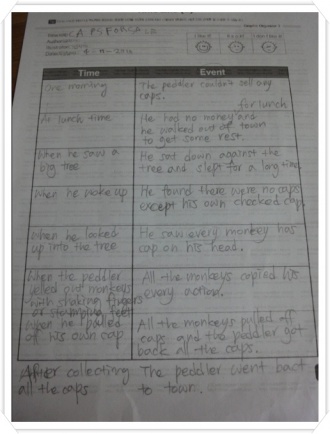 CAPS FOR SALE
Time Event
One morning The peddler couldn't sell any
caps.
for lunch
At lunch time He had no money and
he walked out of town
to get some rest
When he saw a He sat down against the
big tree tree and slept for a long time
When he woke up He found there were no caps
except his own checked cap.
When he looked He saw every monkey has
up into the tree cap on his head.
When the peddler All the monkeys copied his
yelled out monkeys every action.
with shaking fingers
or stomping feet
When he pulled All the monkeys pulled off
off his own cap caps and the peddler got
back all the caps.
After collecting The peddler went bact
all the caps to town.